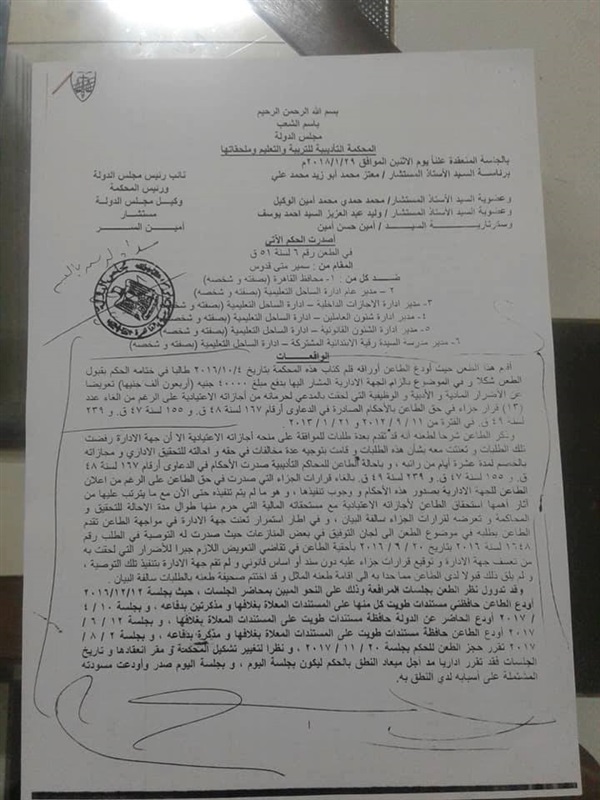 بسم الله الرحمن الرحيم
باسم الشعب
مجلس الدولة
المحكمة التأديبية للتربية والتعليم وملحقاتها
بالجلسة المنعقدة علناً يوم الاثنين الموافق ٢٠١٨/١/٢٩م
برئاسة السيد الأستاذ المستشار / معتز محمد أبو زيد محمد علي نائب رئيس مجلس الدولة
ورئيس المحكمة
وعضوية السيد الأستاذ المستشار / محمد حمدي محمد أمين الوكيل وكيل مجلس الدولة
وعضوية السيد الأستاذ المستشار / وليد عبد العزيز السيد احمد يوسف مستشار
وسكرتارية السيد / أمين حسن أمين أمين السر
أصدرت الحكم الآتي
في الطعن رقم ٦ لسنة ٥١ ق
المقام من : سمير متى قدوس
ضد كل من : ١- محافظ القاهرة (بصفته و شخصه)
٢ – مدير عام إدارة الساحل التعليمية (بصفته و شخصه)
٣- مدير ادارة الاجازات الداخلية – ادارة الساحل التعليمية (بصفته و شخصه)
٤- مدير ادارة شئون العاملين – ادارة الساحل التعليمية (بصفته و شخصه)
٥- مدير ادارة الشئون القانونية – ادارة الساحل التعليمية (بصفته و شخصه)
٦- مدير مدرسة السيدة رقية الابتدائية المشتركة – ادارة الساحل التعليمية (بصفته و شخصه)
الواقعات
أقيم هذا الطعن حيث أودع الطاعن أوراقه قلم كتاب هذه المحكمة بتاريخ ٢٠١٦/١٠/٤ طالبا في ختامه الحكم بقبول
الطعن شكلا و في الموضوع بالزام الجهة الادارية المشار اليها بدفع مبلغ ٤٠٠٠٠ جنيه (أربعون ألف جنيها) تعويضا
عن الأضرار المادية و الأدبية و الوظيفية التي لحقت بالمدعي لحرمانه من أجازاته الاعتيادية على الرغم من الغاء عدد
(١٣) قرار جزاء في حق الطاعن بالأحكام الصادرة في الدعاوى أرقام ١٦٧ لسنة ٤٨ ق و ١٥٥ لسنة ٤٧ ق و ٢٣٩
لسنة ٤٩ ق في الفترة من ٢٠١٢/٩/١١ و ٢٠١٣/١/٢١ .
وذكر الطاعن شرحا لطعنه أنه قد تقدم بعدة طلبات للموافقة على منحه أجازاته الاعتيادية الا أن جهة الادارة رفضت
تلك الطلبات و تعنتت معه بشأن هذه الطلبات و قامت بتوجيه عدة مخالفات في حقه و احالته للتحقيق الاداري و مجازاته
بالخصم لمدة عشرة أيام من راتبه ، و باحالة الطاعن للمحاكم التأديبية صدرت الأحكام في الدعاوى أرقام ١٦٧ لسنة ٤٨
ق و ١٥٥ لسنة ٤٧ ق و ٢٣٩ لسنة ٤٩ ق بالغاء قرارات الجزاء التي صدرت في حق الطاعن على الرغم من اعلان
الطاعن للجهة الادارية بصدور هذه الأحكام و وجوب تنفيذها ، و هو ما لم يتم تنفيذه حتى الآن مع ما يترتب عليها من
آثار أهمها استحقاق الطاعن لأجازاته الاعتيادية مع مستحقاته المالية التي حرم منها طوال مدة الاحالة للتحقيق و
المحاكمة و تعرضه لقرارات الجزاء سالفة البيان ، و في اطار استمرار تعنت جهة الادارة في مواجهة الطاعن تقدم
الطاعن بطلبه في موضوع الطعن الى لجان التوفيق في بعض المنازعات حيث صدرت له التوصية في الطلب رقم
١٦٤٨ لسنة ٢٠١٦ بتاريخ ٢٠١٦/٩/٢٠ بأحقية الطاعن في تقاضي التعويض اللازم جبرا للأضرار التي لحقت به
من تعسف جهة الادارة و توقيع قرارات جزاء عليه دون سند أو أساس قانوني و لم تقم جهة الادارة بتنفيذ تلك التوصية ،
و لم يلق ذلك قبولا لدى الطاعن مما حدا به الى اقامة طعنه الماثل و قد اختتم صحيفة طعنه بالطلبات سالفة البيان .
وقد تدوول نظر الطعن بجلسات المرافعة وذلك على النحو المبين بمحاضر الجلسات ، حيث بجلسة ٢٠١٦/١٢/١٢
أودع الطاعن حافظتي مستندات طويت كل منها على المستندات المعلاة بغلافها و مذكرتين بدفاعه ، و بجلسة ١٠ / ٤
/ ٢٠١٧ أودع الحاضر عن الدولة حافظة مستندات طويت على المستندات المعلاة بغلافها ، و بجلسة ١٢ / ٦ /
٢٠١٧ أودع الطاعن حافظة مستندات طويت على المستندات المعلاة بغلافها و مذكرة بدفاعه ، و بجلسة ٢ / ٨ /
٢٠١٧ تقرر حجز الطعن للحكم بجلسة ٢٠ / ١١ / ٢٠١٧ ، و نظرا لتغيير تشكيل المحكمة و مقر انعقادها و تاريخ
الجلسات فقد تقرر اداريا مد اجل ميعاد النطق بالحكم ليكون بجلسة اليوم ، و بجلسة اليوم صدر وأودعت مسودته
المشتملة على أسبابه لدي النطق به .
١